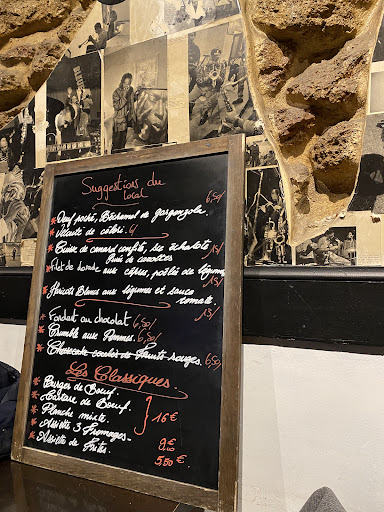 Suggestions du
Local
Oeuf poché, Béchamel de gorgonzola. 6,50
Velouté de céleri. 9
Cuisse de canard confite, jus échalote 15/
Purée de carottes
Filet de dinde aux cèpes, poêlée de légumes 15/
Haricots Blancs aux légumes et sauce
tomate. 13/
Fondant au chocolat 6,50/
Crumble aux Pommes. 6,50/
Cheesecake coulis de fruits rouges. 6,50
Les Classiques.
Burger de Bœuf.
Tartare de Bœuf.
Planche mixte. 16 €
Assiette 3 Fromages - 9 €
Assiette de Frites. 5,50 €